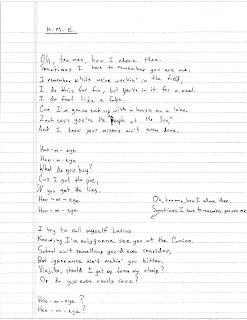 H. M. E.
Oh, tou mou, how I adore thee.
Sometimes I have to remember you are me.
I remember while we're workin' in the field,
I do this for fun, but you're in it for a meal.
I do feel like a fake.
Cuz I'm gonna end up with a house on a lake.
Zach says you're the "People of the Sun,"
And I know your misery ain't even done.
Hoo-m-eye
Hoo-m-eye
What do you buy?
Cuz I got the pie,
If you get the lies.
Hoo-m-eye
Oh, tou mou, how I adore thee.
Hoo-m-eye
Sometimes I have to remember you are me.
I try to call myself Latino
Knowing I'm only gonna see you at the Casino.
School ain't something you'd even consider,
But ignorance ain't makin' you bitter.
Viejito, should I get up from my chair?
Or do you even really care?
Hoo-m-eye?
Hoo-m-eye?